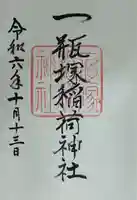 一瓶塚稲荷神社
令和六年十月十三日